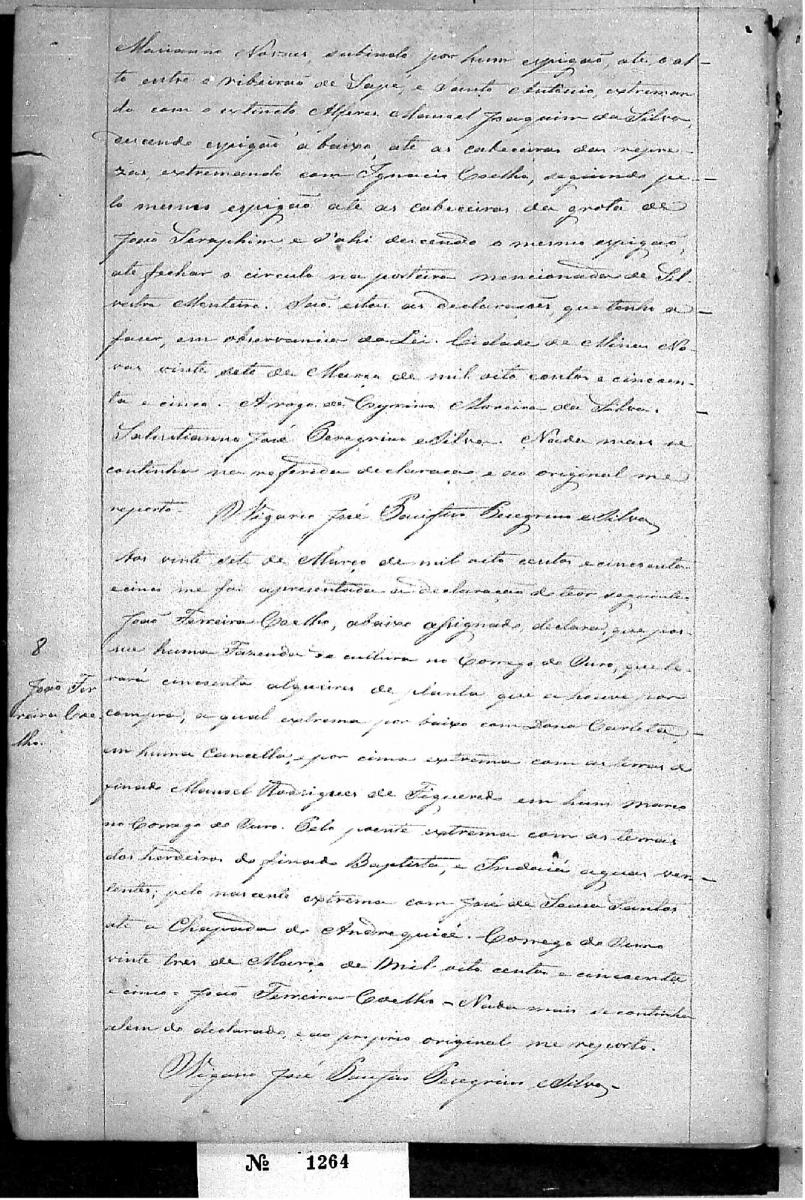 Marianno Nozues, subindo por hum espigão, até o al-
to entre o ribeirão de Sape, e Santo Antônio, extreman
do com o extincto Alferes Manoel Joaquim da Silva,
descendo espigão a baixo, até as cabeceiras das repre-
zas, extremando com Ignacio Coelho, seguindo pe-
lo mesmo espigão até as cabeceiras da grota de
João Seraphim e d'ahi descendo o mesmo espigão,
até fechar o circulo na porteira mencionada de Sil
vestre Monteiro. São estas as declarações, que tenho a
faser, em observancia da Lei. Cidade de Minas No-
vas vinte sete de Março de mil oito centos e cincoen-
ta e cinco. A rogo de Cyrino Moreira da Silva.
Salustianno José Peregrino e Silva. Nada mais se
continha na referida declaração, e ao original me
reporto. O Vigario José Peregrino e Silva
Aos vinte sete de Março de mil oito centos e cincoenta
e cinco me foi apresentada a declaração do teor seguinte
João Ferreira Coelho, abaixo assignado, declara, que pos-
sue huma Fazenda de cultura no Corrego do Ouro, que le-
vará cincoenta alqueires de planta que a houve por
compra, a qual extrema por baixo com Dona Carlota,
em huma cancella, e por cima extrema com as terras do
finado Manoel Rodrigues de Figueredo em hum marco
no Corrego do Ouro. Pelo poente extrema com as terras
dos herdeiros do finado Baptista, e Indaiá aguas ver-
tentes, pelo nascente extrema com José de Souza Santos
até a Chapada do Andrequicé. Corrego do Ouro
vinte tres de Março de Mil oito centos e cincoenta
e cinco. João Ferreira Coelho - Nada mais se continha
alem do declarado, e ao proprio original me reporto.
O Vigario José Peregrino e Silva
8
João Fer
reira Coe
lho.
Nº 1264